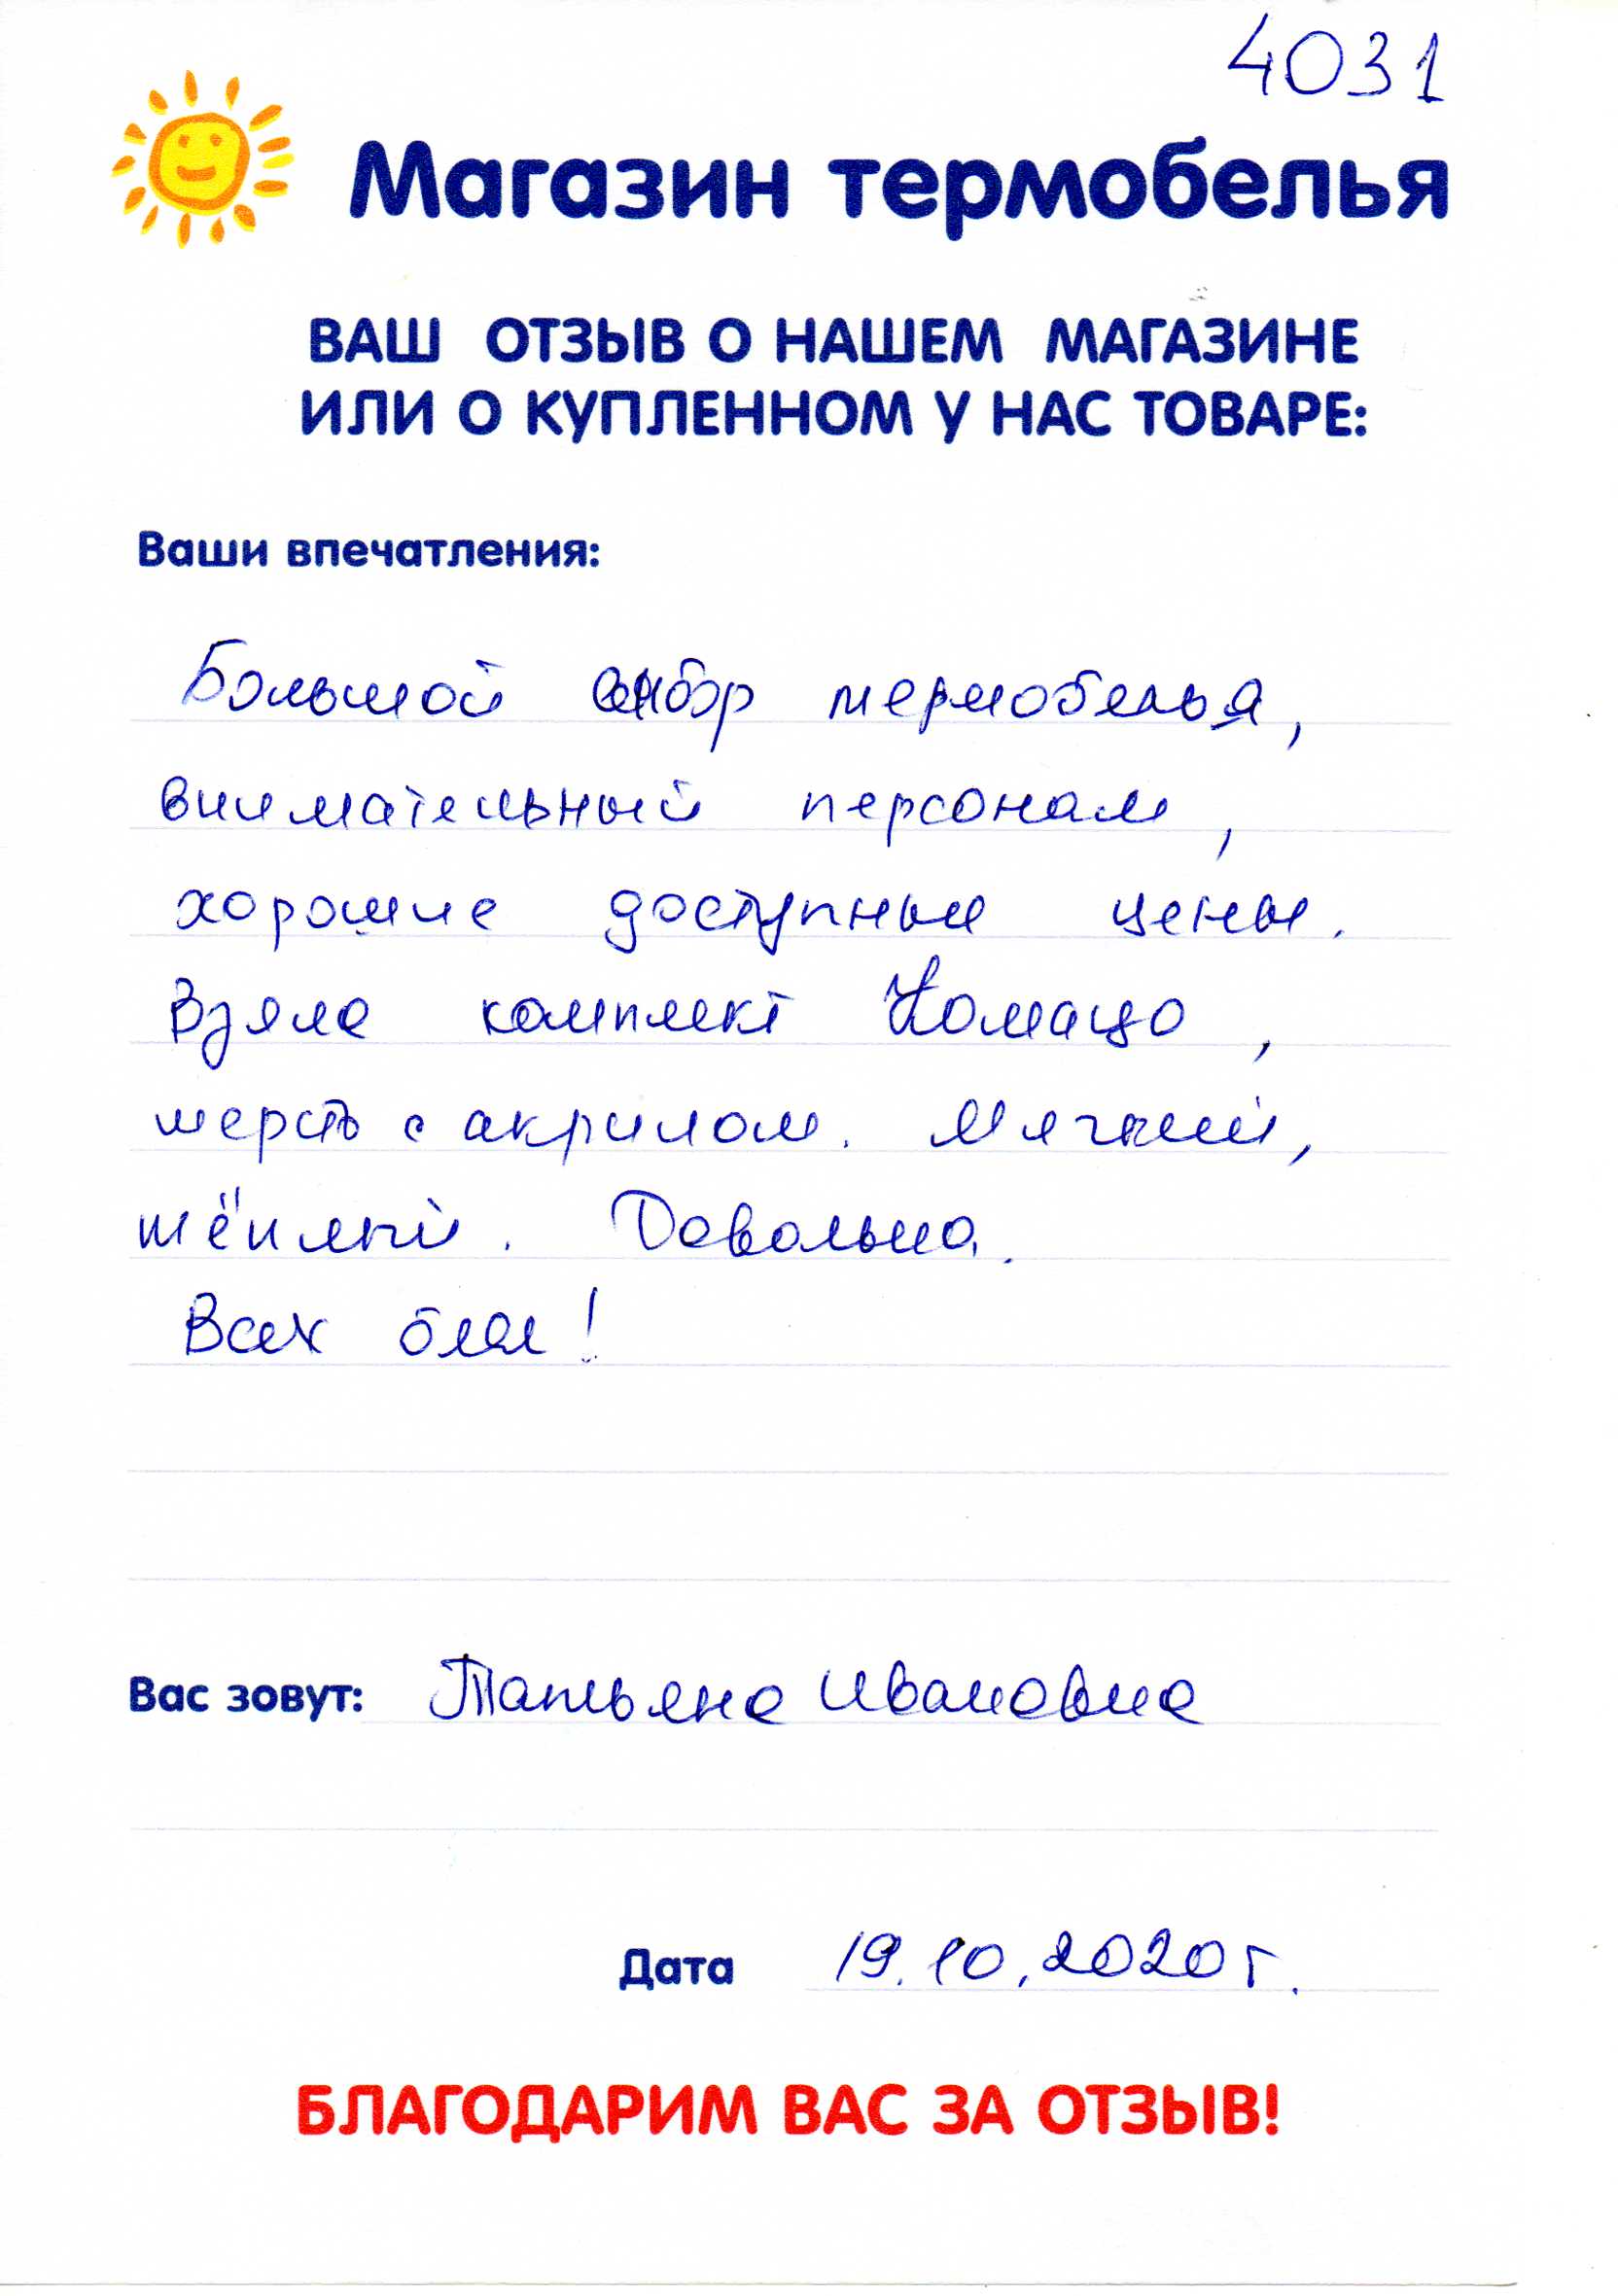 4031
Магазин термобелья
ВАШ ОТЗЫВ О НАШЕМ МАГАЗИНЕ
ИЛИ О КУПЛЕННОМ У НАС ТОВАРЕ:
Ваши впечатления:
Большой выбор термобелья,
внимательный персонал,
хорошие доступные цены.
Взяла комплект Комацо,
шерсть с акрилом. Мягкий,
тёплый. Довольна.
Всех благ!
Вас зовут: Татьяна Ивановна
Дата 19.10.2020г.
БЛАГОДАРИМ ВАС ЗА ОТЗЫВ!